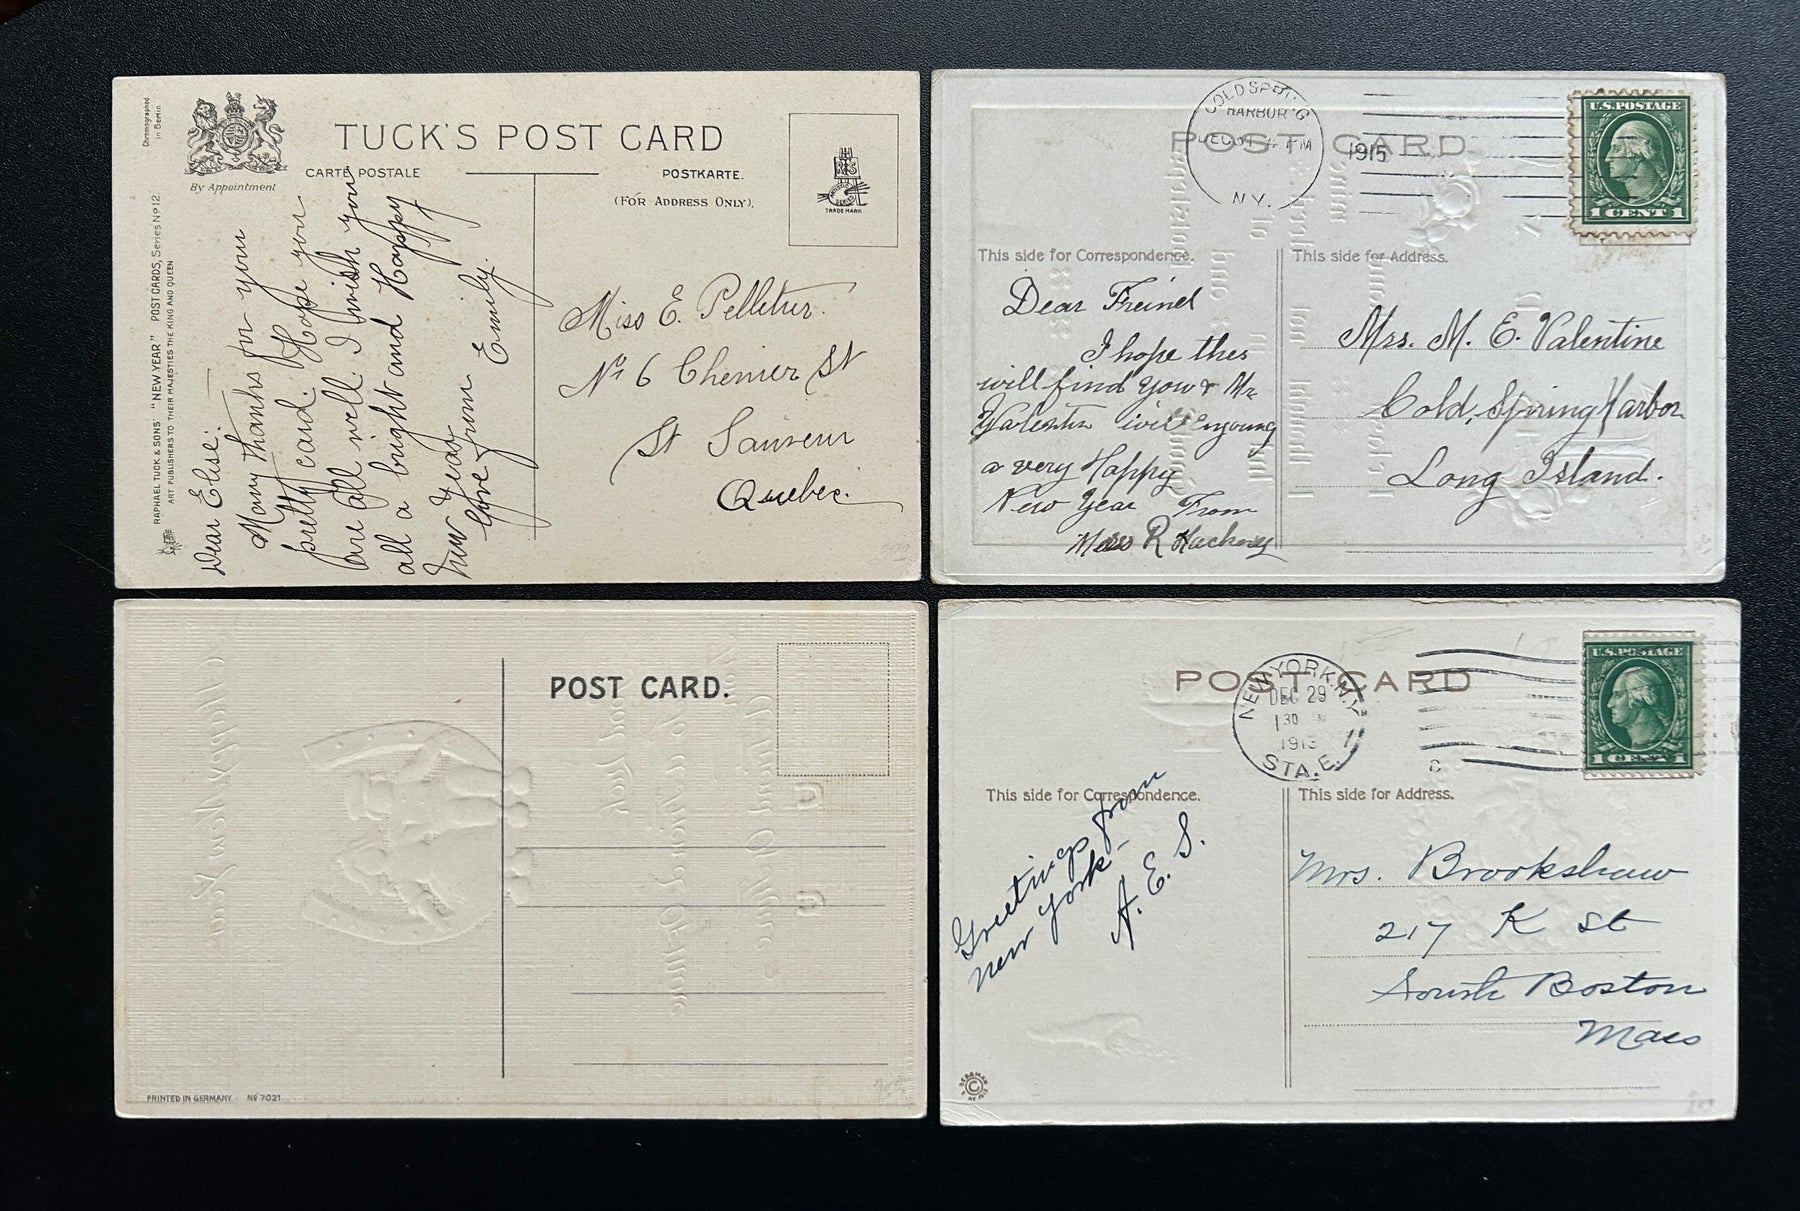 Chromographed
in Berlin
By Appointment
TUCK'S POST CARD
CARTE POSTALE
POSTKARTE.
(FOR ADDRESS ONLY).
TRADE MARK
RAPHAEL TUCK & SONS' "NEW YEAR" POST CARDS, Series Nº 12
ART PUBLISHERS TO THEIR MAJESTIES THE KING AND QUEEN
Dear Elise:
Many thanks for your
pretty card. Hope you
are all well. I wish you
all a bright and Happy
New Year
Love from Emily.
Miss E. Pelletier.
Nº 6 Chenier St
St Sauveur
Quebec.
POST CARD
COLD SPRING
HARBOR
N.Y.
1915
U.S. POSTAGE
1 CENT 1
This side for Correspondence.
This side for Address.
Dear Freind
I hope this
will find you & Mr
Valentin will Enyoung
a very Happy
New Year From
R
Mrs. M. E. Valentine
Cold Spring Harbor
Long Island.
POST CARD.
PRINTED IN GERMANY Nº 7021
POST CARD
NEW YORK, N.Y.
DEC 29
1 30
1913
STA. E.
U.S. POSTAGE
1 CENT 1
This side for Correspondence.
This side for Address.
Greetings from
New York-
A. E. S.
Mrs. Brookshaw
217 K St
South Boston
Mass
BERGMAN
©